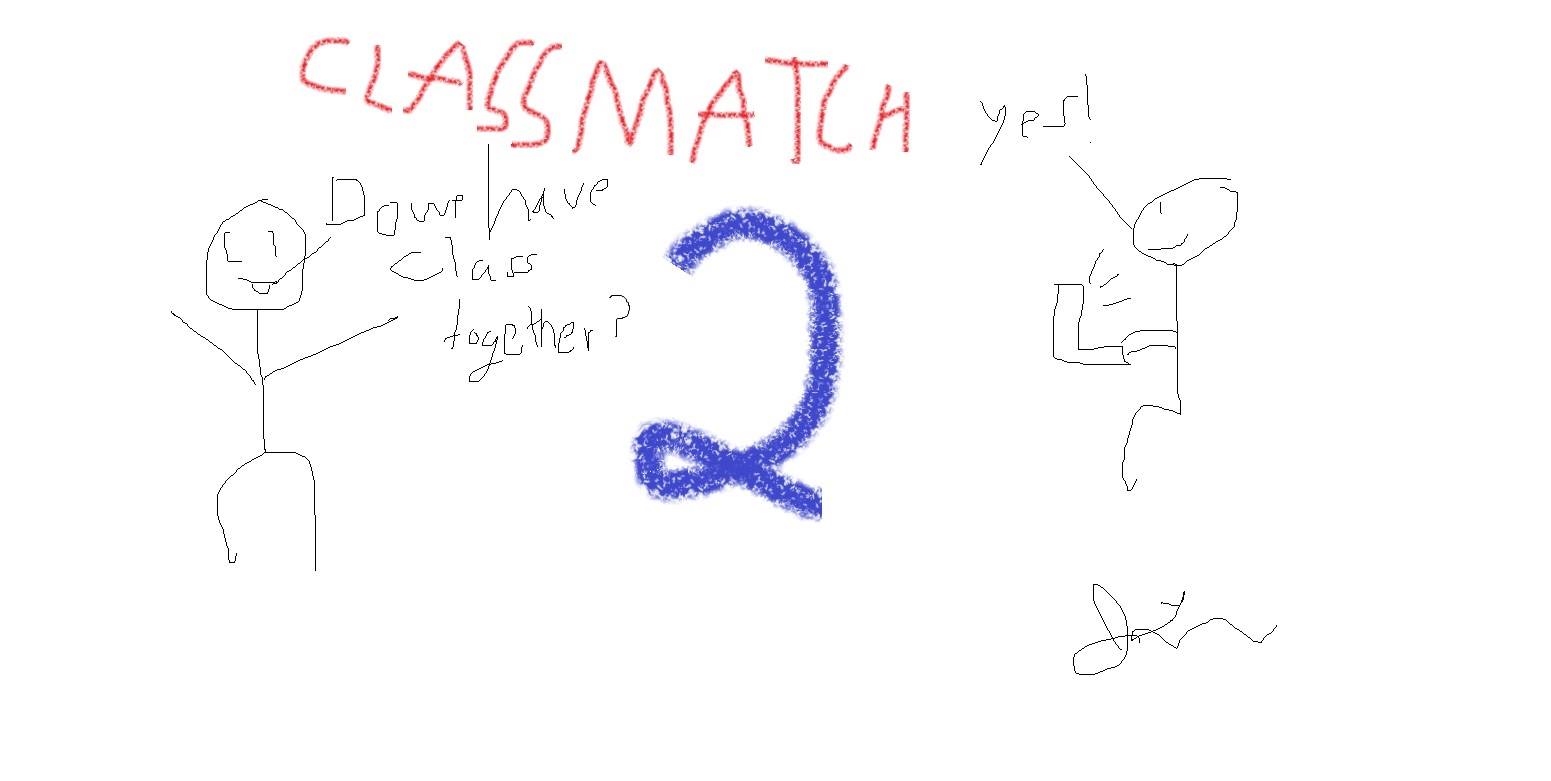 CLASSMATCH
2
Do we have
class
together?
yes!